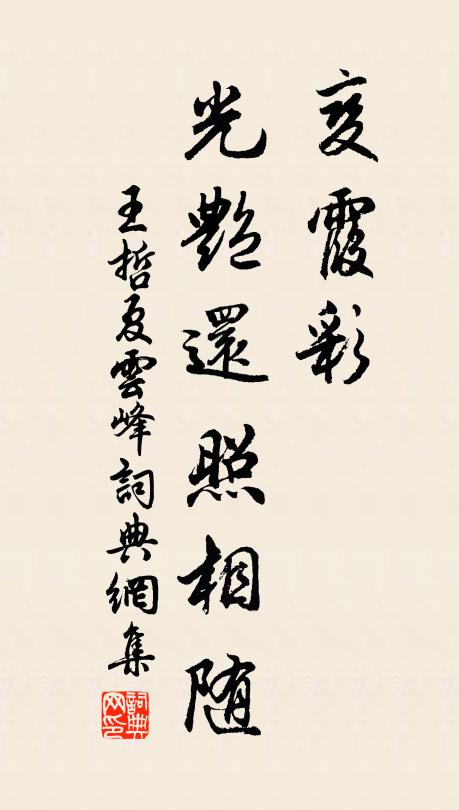 变霞彩
光艷還照相随
王哲夏雲峰詞典網集
詞典
网印